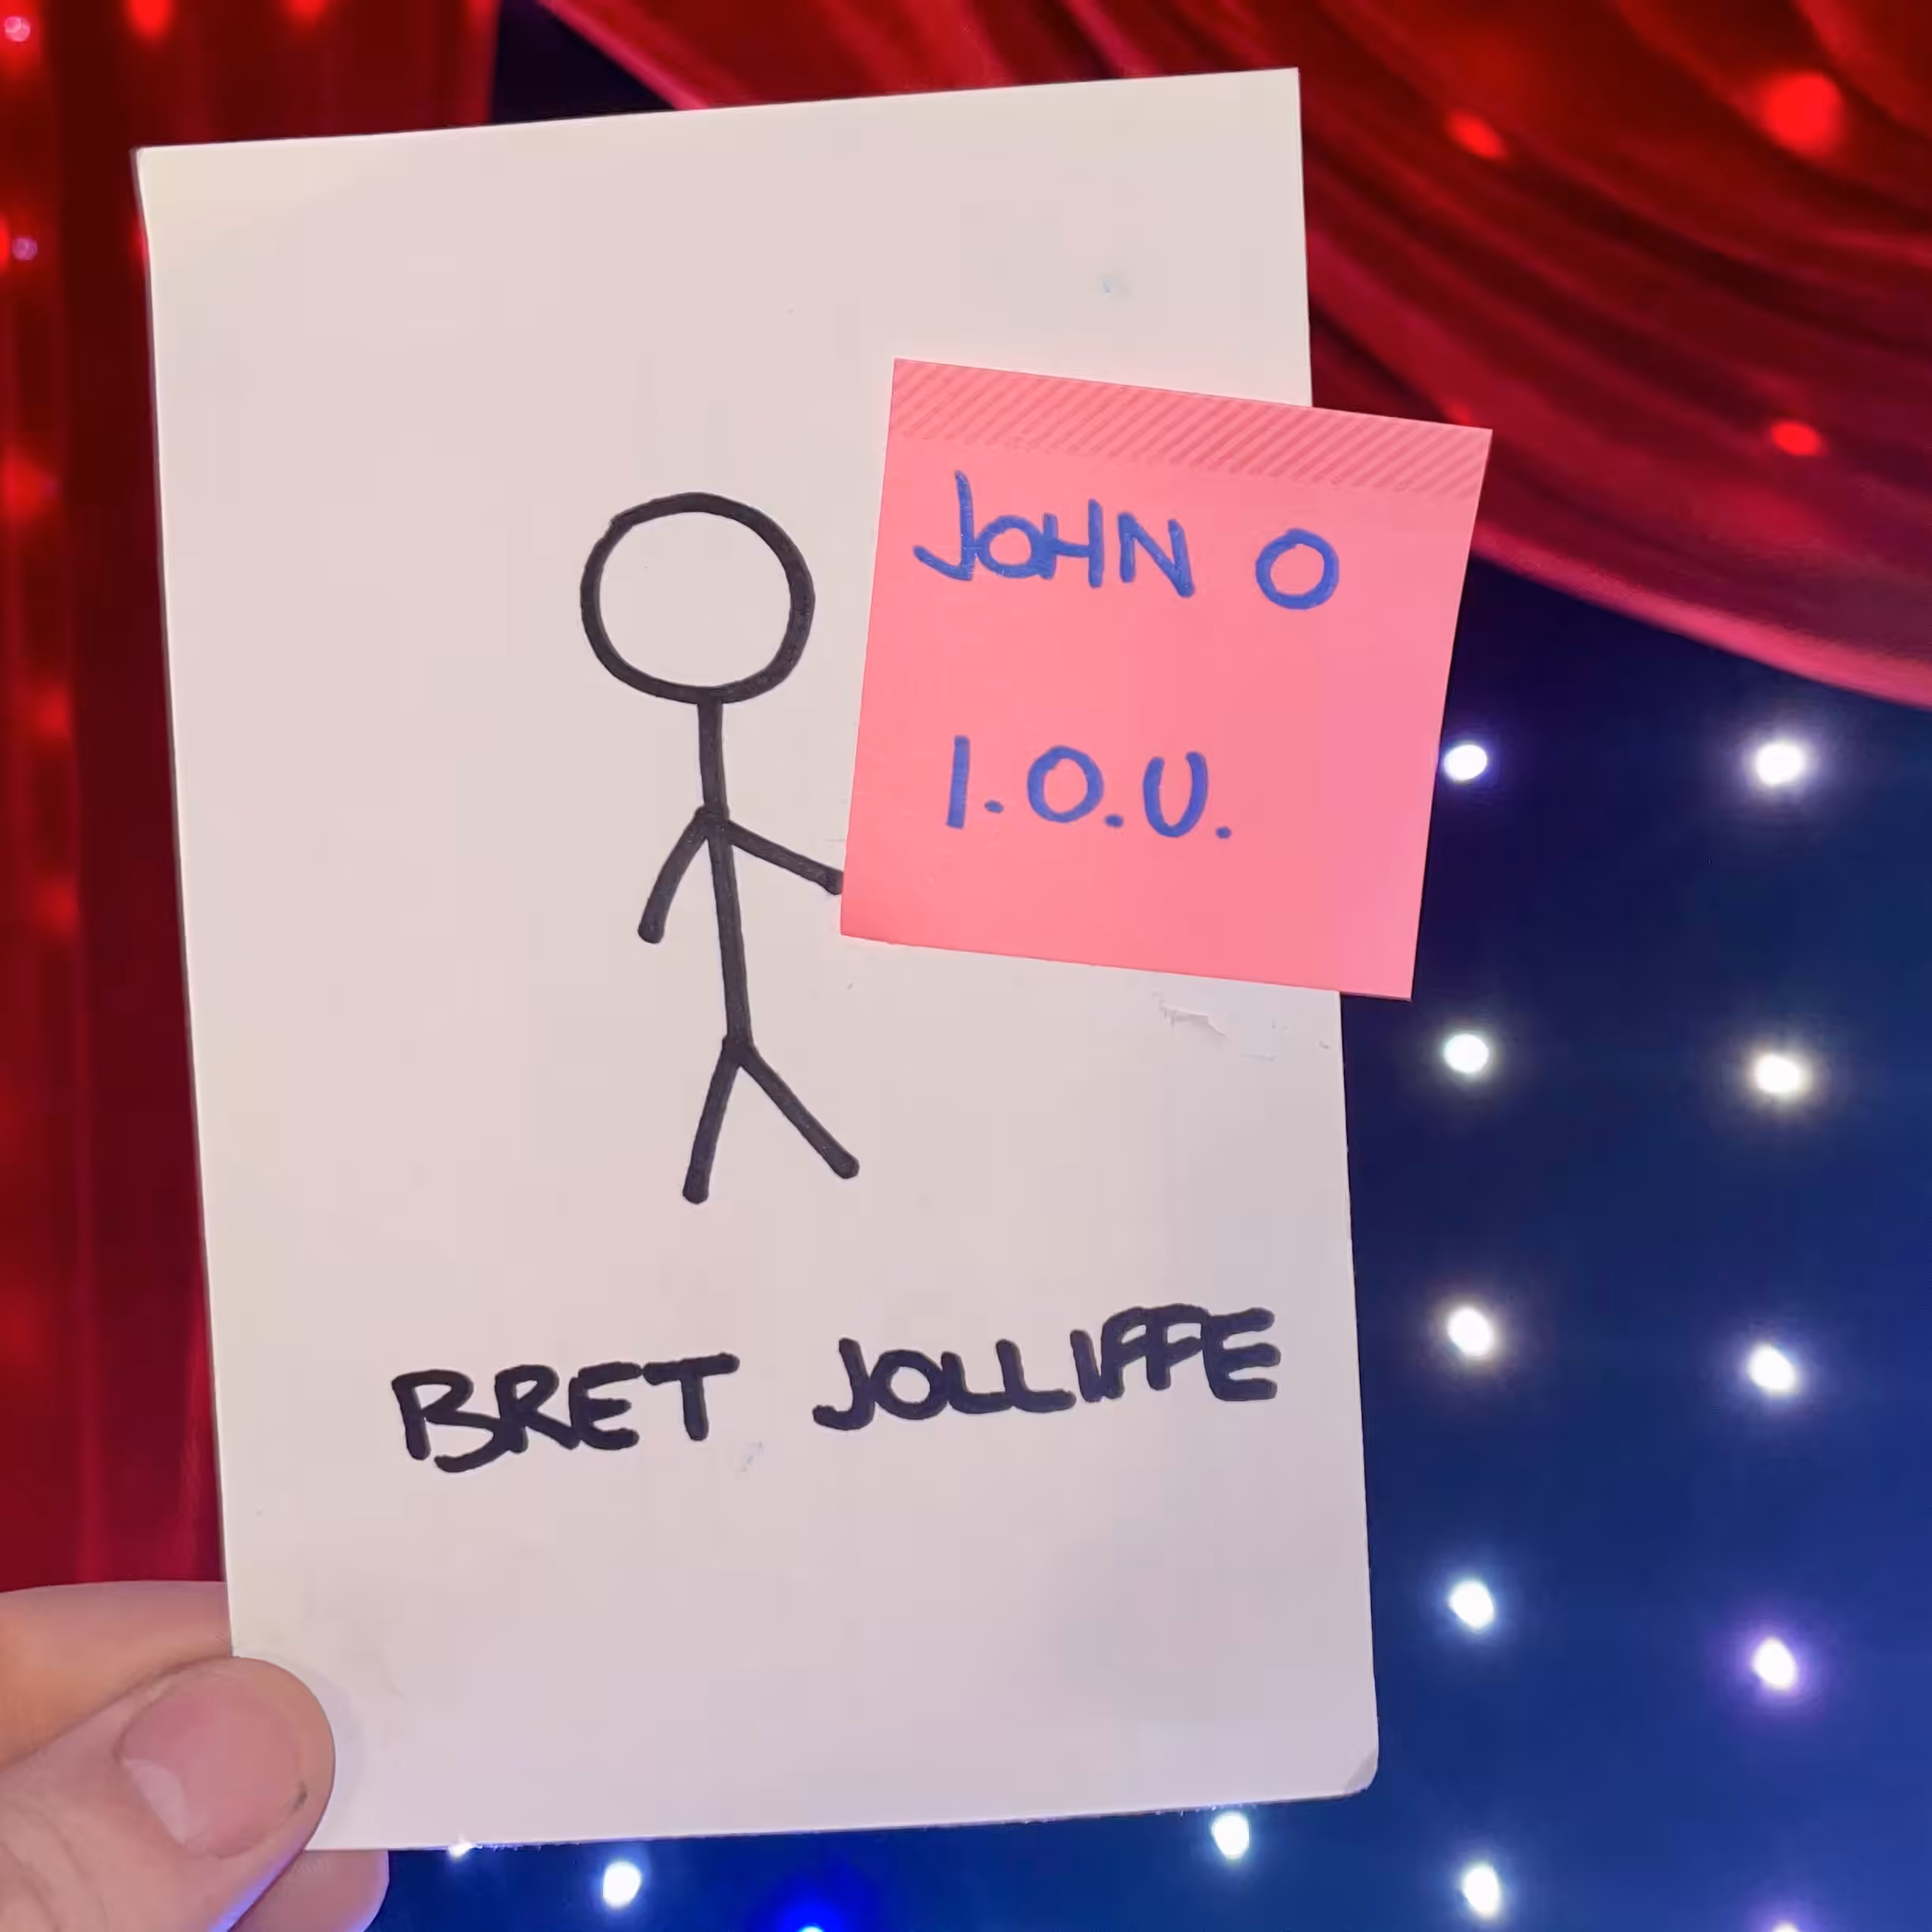 JOHN O
I.O.U.
BRET JOLLIFFE